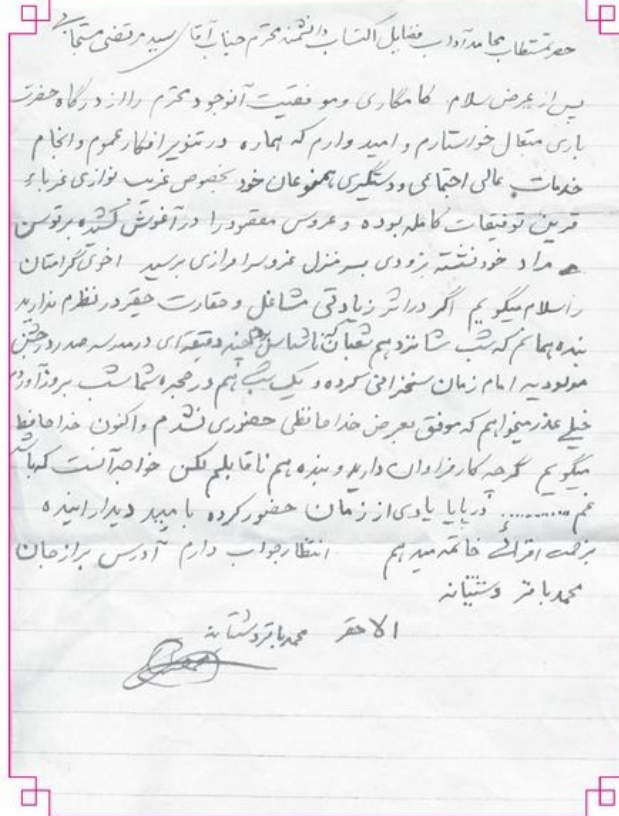 حضرتمستطاب محامد آداب فضایل اکتساب دانشمند محترم جناب آقای سید مرتضی مستجابی
پس از عرض سلام کامکاری و موفقیت آنوجود محترم را از درگاه حضرت
باری متعال خواستارم و امیدوارم که هماره در تنویر افکار عموم و انجام
خدمات عالی اجتماعی و دستگیری همنوعان خود بخصوص غریب نوازی غرباء
قرین توفیقات کامله بوده و عروس مقصود را در آغوش کشیده بر توسن
مراد خود نشسته بزودی بسر منزل عز و سرافرازی برسید اخوی گرامتان
را سلام میگویم اگر در اثر زیادتی مشاغل و حقارت حقیر در نظرم ندارید
بنده همانم که شب شانزدهم شعبان چند دقیقه‌ای در مدرسه صدر در جشن
مولودیه امام زمان سخنرانی کرده و یک شب هم در حجره شما شب بروز آوردم
خیلی عذر میخواهم که موفق بعرض خداحافظی حضوری نشدم و اکنون خداحافظ
میگویم گرچه کار فراوان دارید و بنده هم ناقابلم لکن خواجه آنست که باشد
غم ........... در پایان یادی از زمان حضور کرده با مید دیدار اینده
خاتمه میدهم انتظار جواب دارم آدرس برازجان
محمد باقر وشتیانه
الاحقر محمد باقر وشتیانه